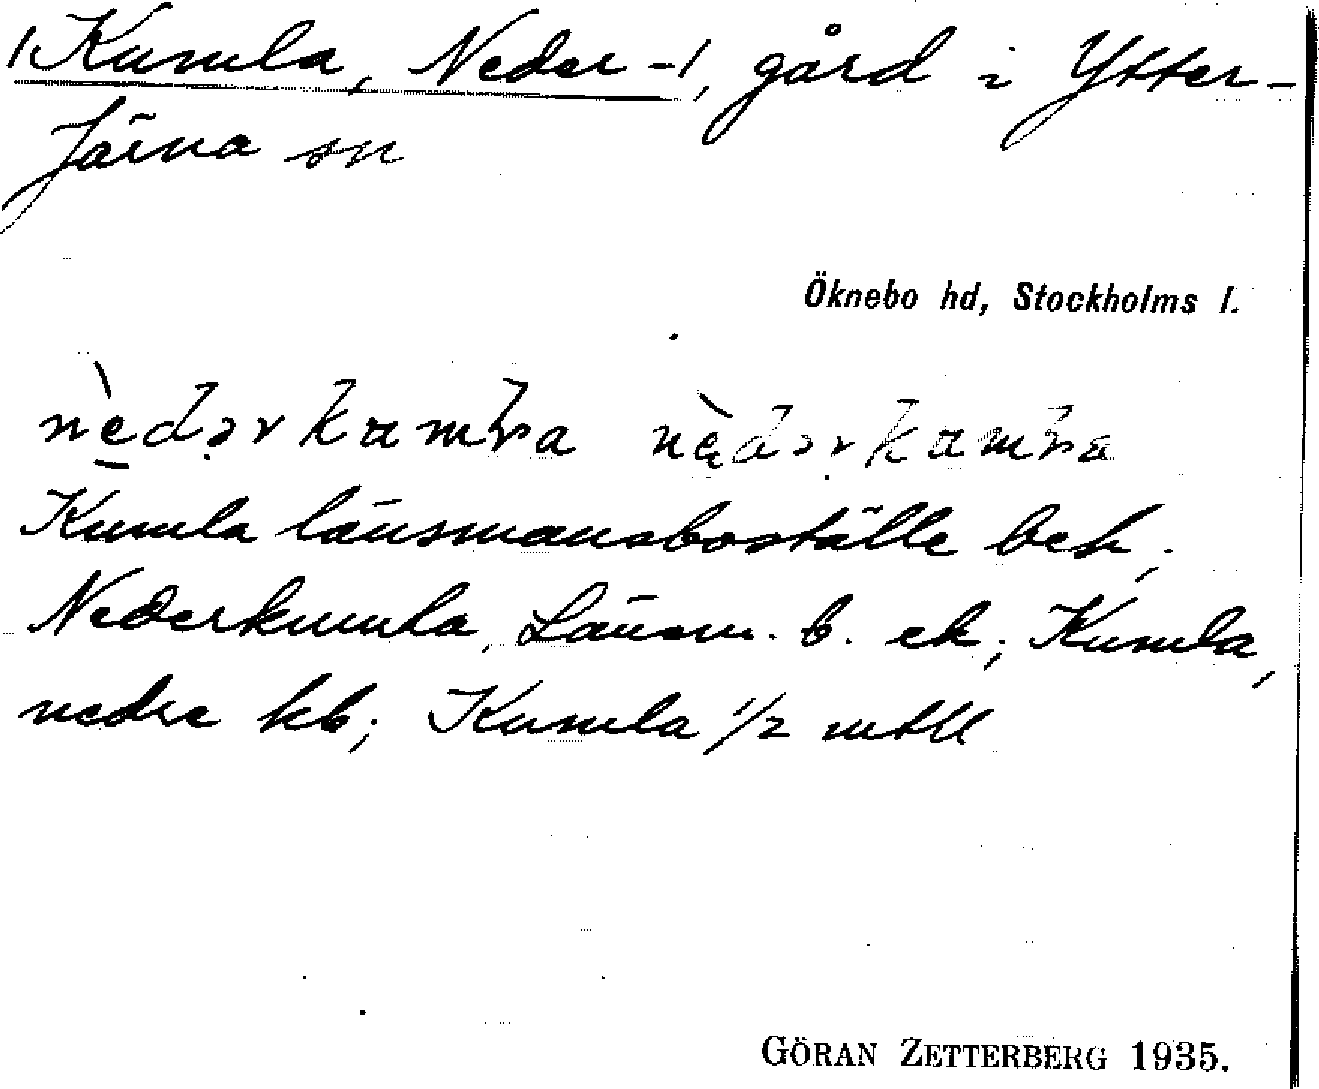 /Kumla, Neder-/, gård i Ytter-
Järna sn
Öknebo hd, Stockholms l.
Kumla länsmansboställe bek.
Nederkumla, Länsm. b. ek; Kumla,
nedre kb; Kumla 1/2 mtll
GÖRAN ZETTERBERG 1935.